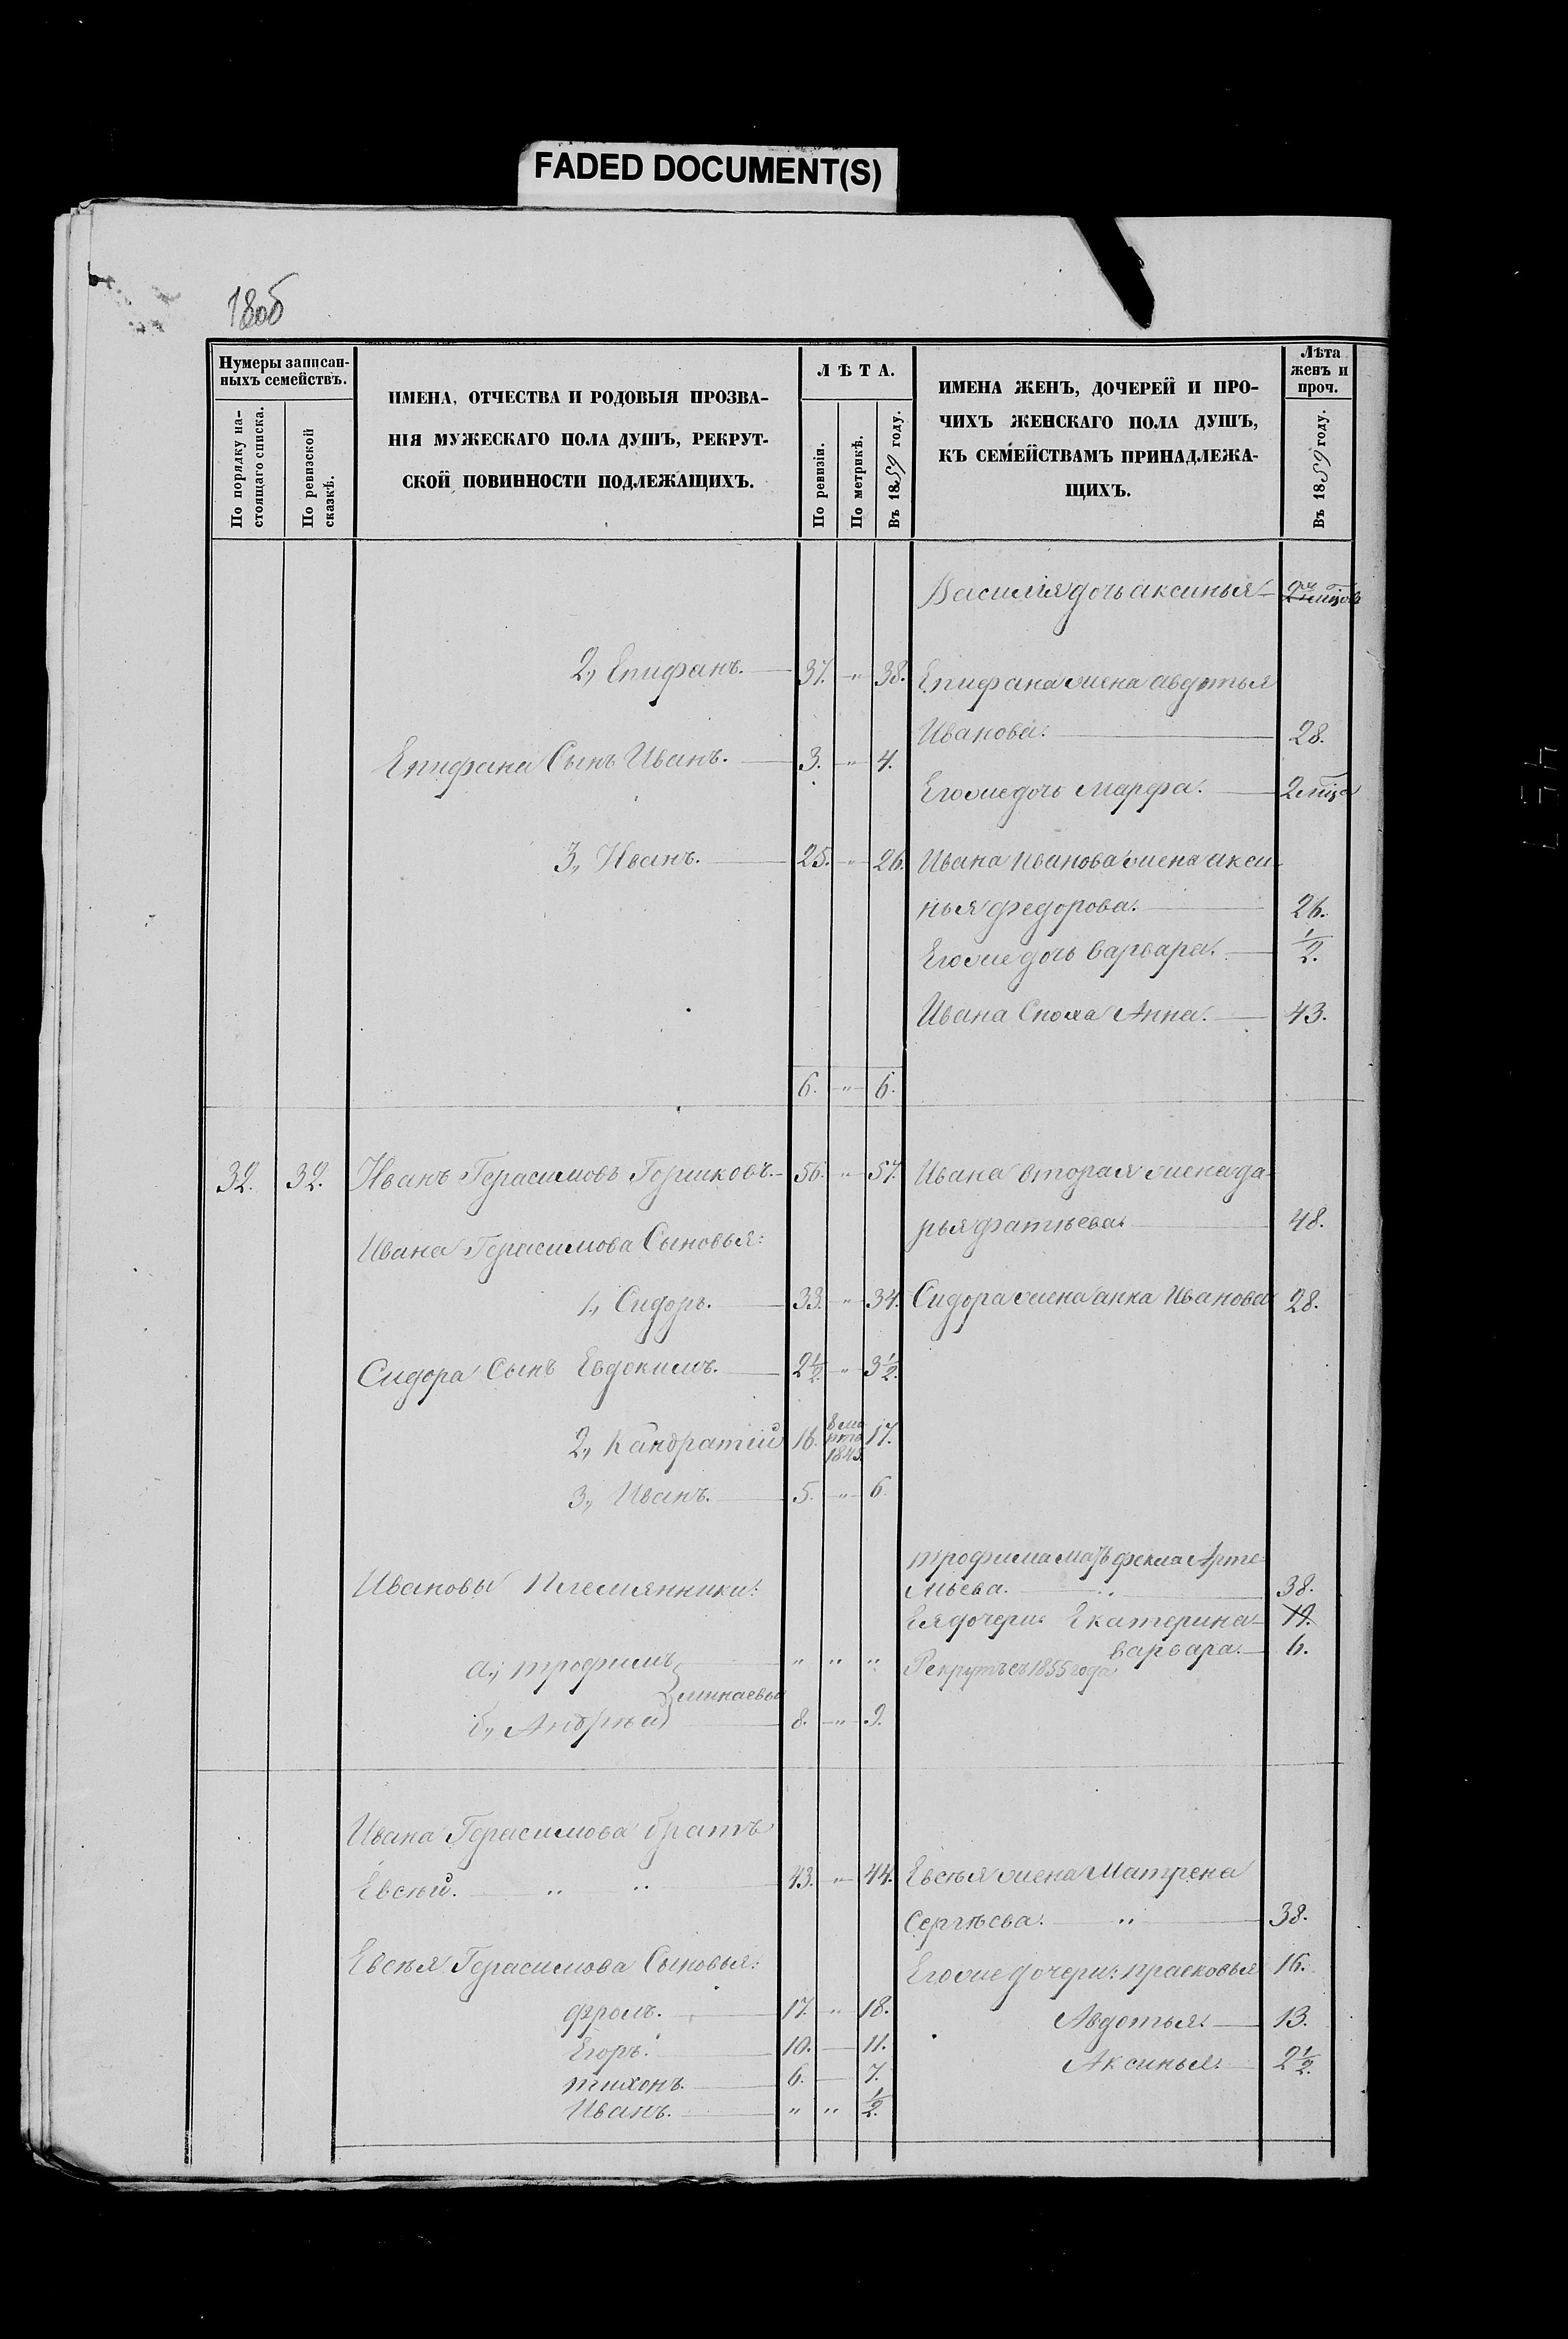 FADED DOCUMENT(S)
180б
Нумеры записан-
ныхъ семействъ.
По порядку на-
стоящаго списка.
По ревизской
сказкѣ.
ИМЕНА, ОТЧЕСТВА И РОДОВЫЯ ПРОЗВА-
НІЯ МУЖЕСКАГО ПОЛА ДУШЪ, РЕКРУТ-
СКОЙ ПОВИННОСТИ ПОДЛЕЖАЩИХЪ.
ЛѢТА.
По ревизіи.
По метрикѣ.
Въ 1859 году.
ИМЕНА ЖЕНЪ, ДОЧЕРЕЙ И ПРО-
ЧИХЪ ЖЕНСКАГО ПОЛА ДУШЪ,
КЪ СЕМЕЙСТВАМЪ ПРИНАДЛЕЖА-
ЩИХЪ.
Лѣта
женъ и
проч.
Въ 1859 году.
Василія дочь аксинья
2., Епифанъ. 37. " 38. Епифана жена авдотья
Иванова. 28.
Епифана Сынъ Иванъ. 3. " 4.
Егоже дочь Марфа. 2 мѣца
3., Иванъ. 25. " 26. Ивана Иванова жена акси-
нья федорова. 26.
Егоже дочь варвара. 1/2.
Ивана Сноха Анна. 43.
6. " 6.
32. 32. Иванъ Герасимовъ Горшковъ. 56. " 57. Ивана вторая жена да-
рья фатѣева. 48.
Ивана Герасимова Сыновья:
1., Сидоръ. 33. " 34. Сидора жена анна Иванова 28.
Сидора Сынъ Евдокимъ. 2 1/2. " 3 1/2.
2., Кандратій 16. 8 ма
рта
1843. 17.
3., Иванъ. 5. " 6.
трофима мать фекла Арте-
мьева. " 38.
Ивановы Племянники:
Ея дочери: Екатерина 19.
варвара. 6.
а., трофимъ " " " Рекрутъ съ 1855 года
минаевы
б., Андрѣй 8. " 9.
Ивана Герасимова братъ
Евсѣй. " " 43. " 44. Евсѣя жена Матрена
Сергѣева. " 38.
Евсѣя Герасимова Сыновья: Егоже дочери: прасковья 16.
фролъ. 17. " 18. Авдотья. 13.
Егоръ. 10. 11.
Аксинья. 2 1/2.
тихонъ. 6. 7.
Иванъ. " " 1/2.